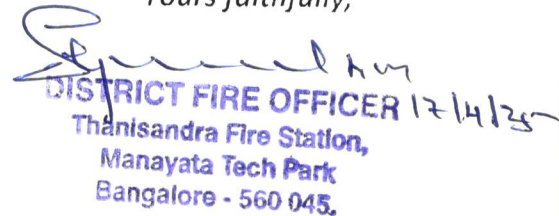 Yours faithfully,
DISTRICT FIRE OFFICER 17/4/25
Thanisandra Fire Station,
Manayata Tech Park
Bangalore - 560 045.